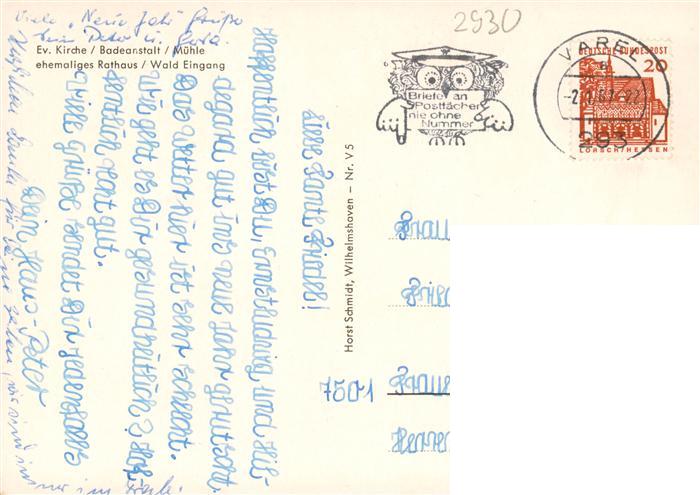 Viele "Neue Jahr Grüße
Dein Peter u. Gerda.
Ev. Kirche / Badeanstalt / Mühle
ehemaliges Rathaus / Wald Eingang
2930
Briefe an
Postfächer
nie ohne
Nummer
VAREL
293
DEUTSCHE BUNDESPOST
20
LORSCH/HESSEN
Liebe Tante Friedel!
Hoffentlich bist Du, Ernstludwig und Hil-
degard gut ins neue Jahr gerutscht.
Das Wetter hier ist sehr schlecht.
Wie geht es Dir gesundheitlich? Hof-
fentlich recht gut.
Viele Grüße sendet Dir jedenfalls
Dein Hans-Peter
Herzlichen Dank für
wir sind
immer im
Horst Schmidt, Wilhelmshaven – Nr. V 5
Frau
7501